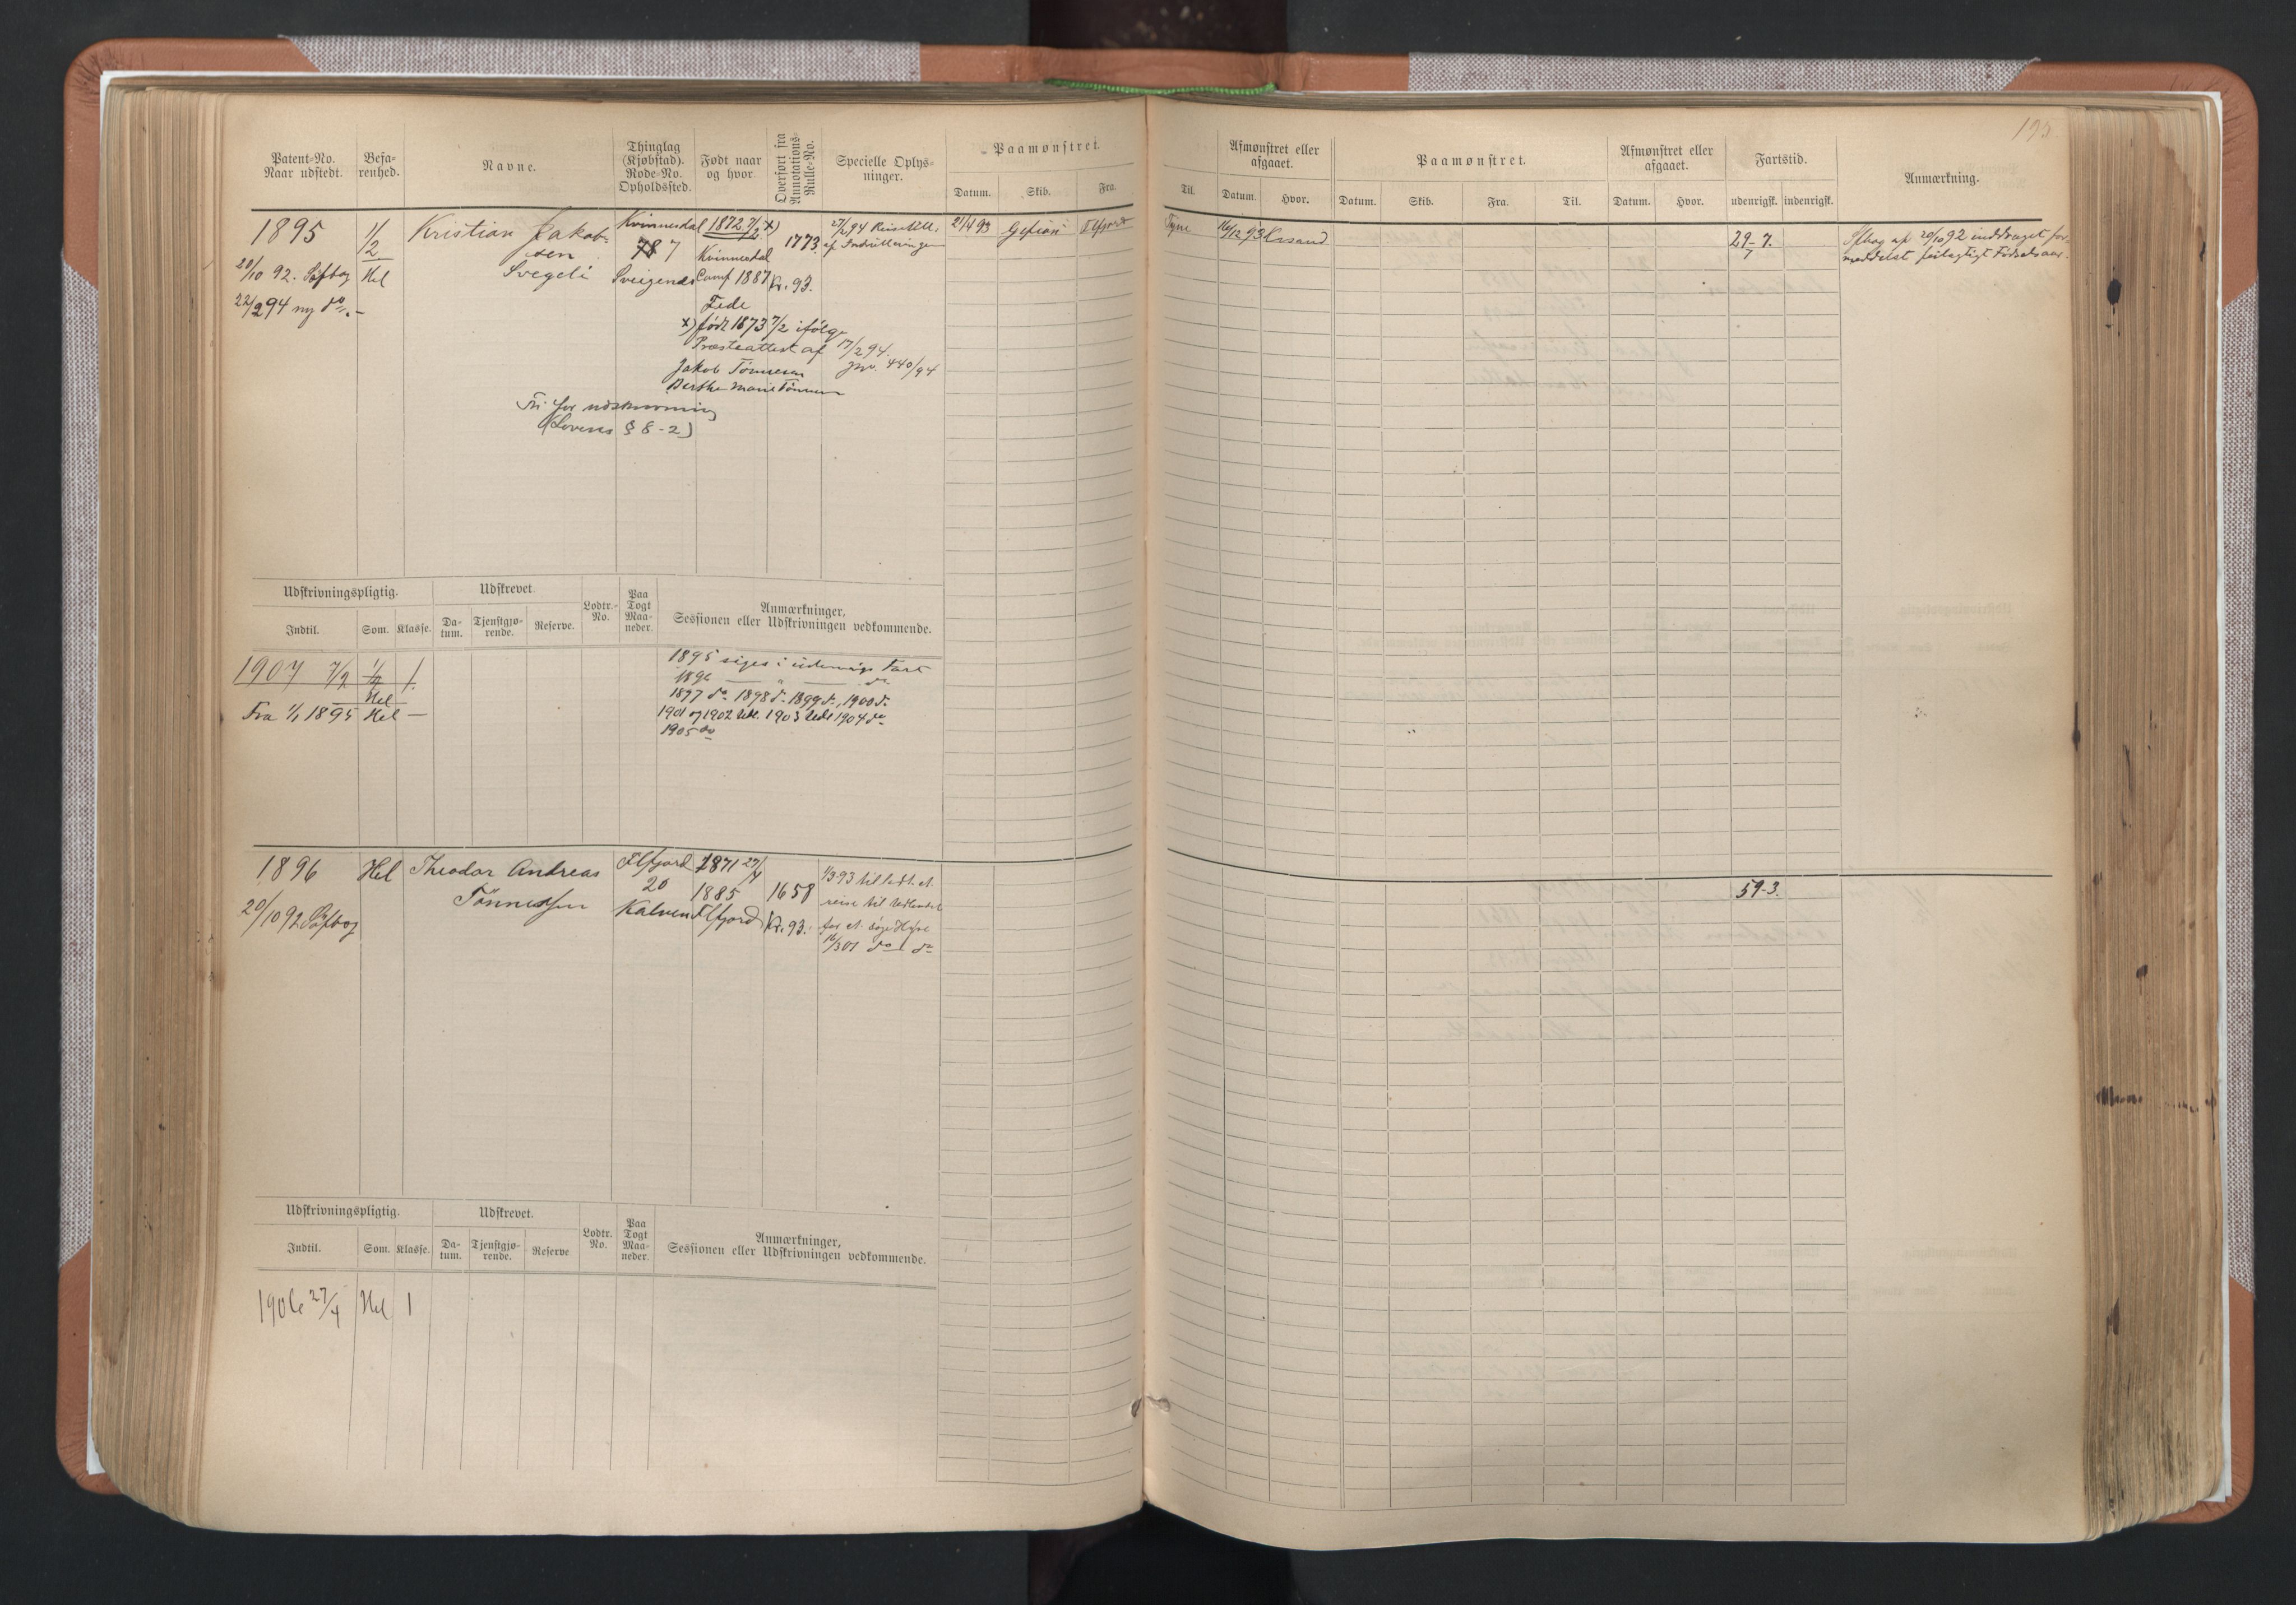 195
Patent-No. Naar udstedt.
Befarenhed.
Navne.
Thinglag (Kjøbstad). Rode-No. Opholdssted.
Født naar og hvor
Overført fra Annotations-Rulle-No.
Specielle Oplysninger.
Paamønstret.
Datum. Skib. Fra. Til.
Afmønstret eller afgaaet.
Datum. Hvor.
Paamønstret.
Datum. Skib. Fra. Til.
Afmønstret eller afgaaet.
Datum. Hvor.
Fartstid.
udenrigsk. indenrigsk.
Anmærkning.
1895
20/10 92. Søfbog
22/2 94 ny do. –
1/2
Hel
Kristian Jakob-
sen
Svegeli
Kvinnesdal
78 7
Sveigenes
1872 7/2 x)
Kvinnesdal
Conf 1887
Fede
x) født 1873 7/2 ifølge
Præsteattest af 17/2 94.
Jno. 440/94
Jakob Tönnesen
Berthe Marie Tönnesen
1773.
Kr. 93.
af Indrulleringen
Fri for udskrivning
(Lovens § 8-2)
21/4 93 Gefion Flfjord
Tyne 16/12 93 Krsand
29-7.
7
Sfbog af 20/10 92 inddraget for-
meddelst feilagtigt Fødselsaar.
Udskrivningspligtig.
Indtil. Som. Klasse.
Udskrevet
Datum. Tjenstgjørende. Reserve.
Lodtr.-No.
Paa Togt Maaneder.
Anmærkninger, Sessionen eller Udskrivningen vedkommende.
1907 7/2 1/2 1.
Hel
Fra 1/1 1895 Hel –
1895 siges i udenrigs Fart
1896 — " — do
1897 do 1898 do 1899 do, 1900 do
1901 og 1902 Udl. 1903 Udl 1904 do
1905 do
1896
20/10 92 Søfbog
Hel
Theodor Andreas
Tönnessen
Flfjord
20
Kalven
1871 27/4
1885
Flfjord
1658
Kr. 93.
1/3 93 tilladt at
reise til Udlandet
for at søge Hyre
16/3 01 do do
59-3.
Udskrivningspligtig.
Indtil. Som. Klasse.
Udskrevet.
Datum. Tjenstgjørende. Reserve
Lodtr. No.
Paa Togt Maaneder.
Anmærkninger, Sessionen eller Udskrivningen vedkommende.
1906 27/4 Hel 1